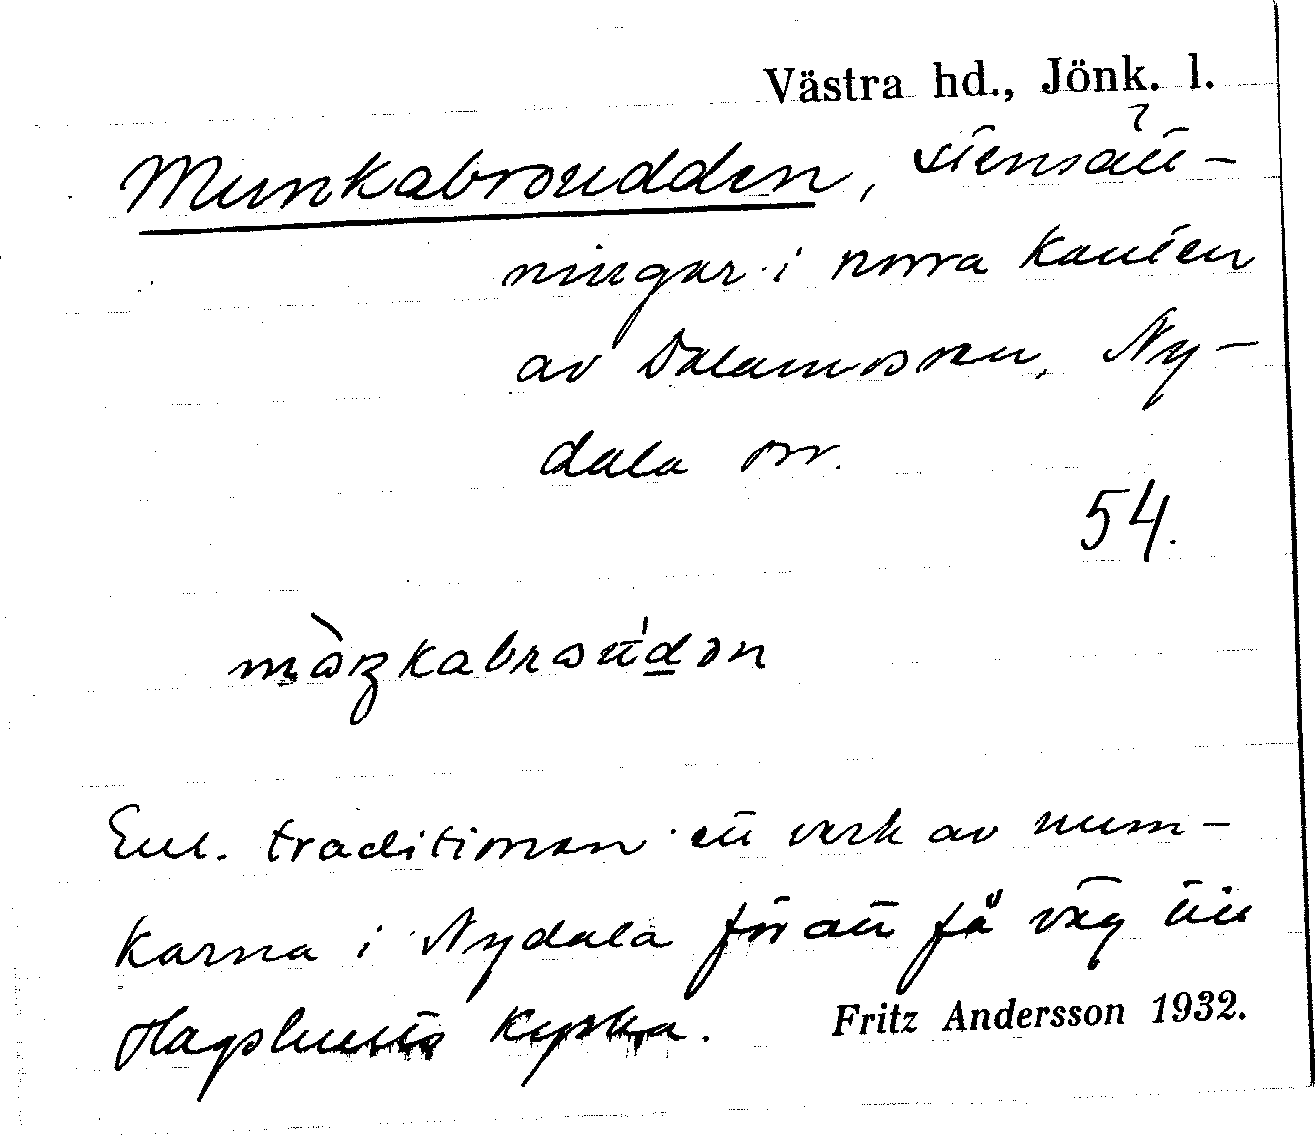 Västra hd., Jönk. l.
Munkabroudden, stensätt-
ningar i norra kanten
av Dalamossen, Ny-
dala sn.
54.
Enl. traditionen ett verk av mun-
karna i Nydala för att få väg till
Hagshults kyrka.
Fritz Andersson 1932.